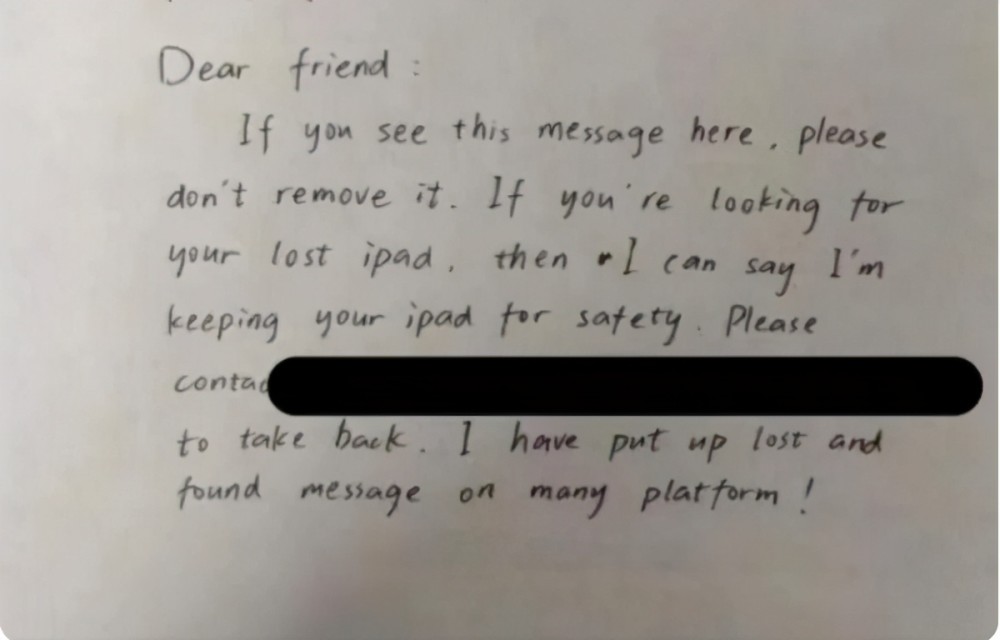 Dear friend :
If you see this message here, please
don't remove it. If you're looking for
your lost ipad, then I can say I'm
keeping your ipad for safety. Please
to take back. I have put up lost and
found message on many platform !